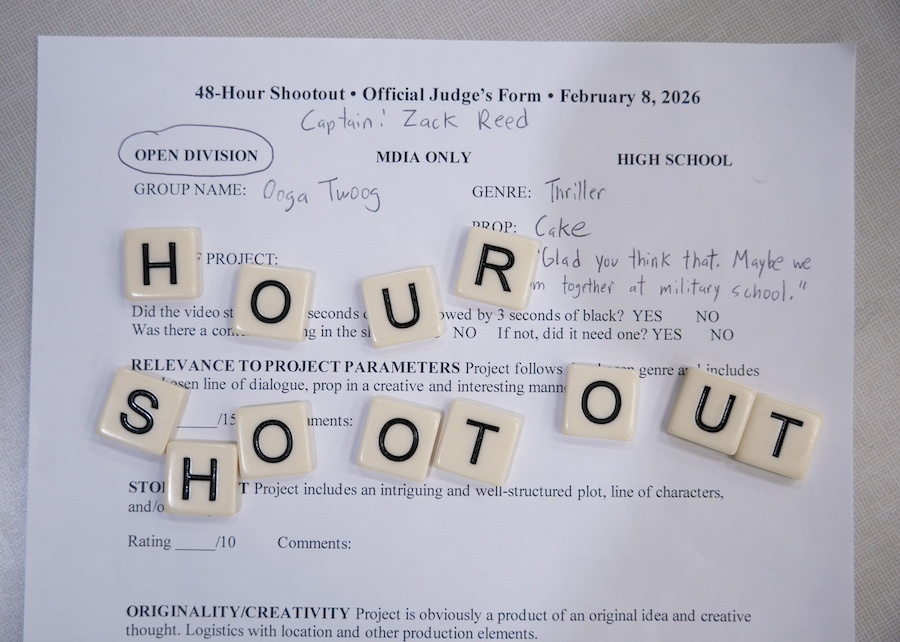 48-Hour Shootout • Official Judge's Form • February 8, 2026
Captain: Zack Reed
OPEN DIVISION MDIA ONLY HIGH SCHOOL
GROUP NAME: Ooga Twoog GENRE: Thriller
PROP: Cake
F PROJECT: "Glad you think that. Maybe we
together at military school."
HOUR
Did the video seconds by 3 seconds of black? YES NO
Was there a in the NO If not, did it need one? YES NO
RELEVANCE TO PROJECT PARAMETERS Project follows genre includes
line of dialogue, prop in a creative and interesting
SHOOT OUT
____/15 Comments:
Project includes an intriguing and well-structured plot, line of characters,
Rating ____/10 Comments:
ORIGINALITY/CREATIVITY Project is obviously a product of an original idea and creative
thought. Logistics with location and other production elements.